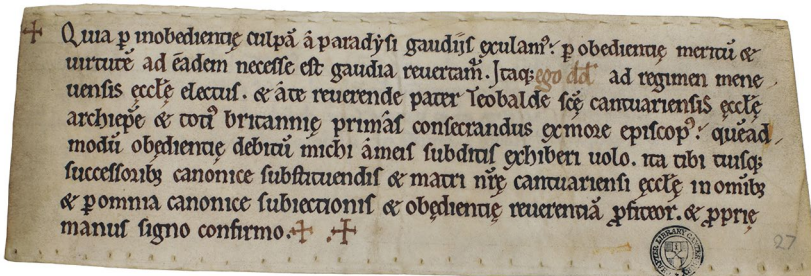 ✢ Quia ꝑ inobedientię culpā á paradẏsi gaudijs exulamꝰ. ꝑ obedientię meritū &
uirtutē ad eadem necesse est gaudia reuertamur. Itaq; ego dd ad regimen mene
uensis ęccłę electus. & á te reuerende pater Teobalde scę cantuariensis ęccłę
archiepē & totiꝰ britannię primas consecrandus ex more episcopꝰ. quēad
modū obędientię debitū michi á meis subditis exhiberi uolo. ita tibi tuisq;
successorib; canonice substituendis & matri nrę cantuariensi ęccłę in omīb;
& ꝑ omnia canonice subiectionis & obędientię reuerentiā ꝓfiteor. & ꝓprię
manus signo confirmo. ✢ . ✢
27
CHAPTER LIBRARY